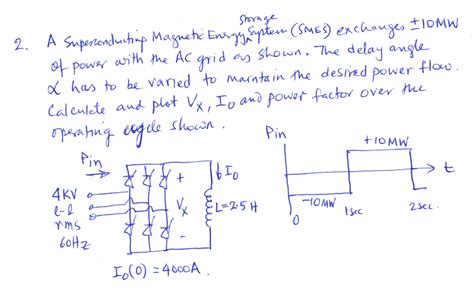 storage
2. A Superconducting Magnetic Energy System (SMES) exchanges ±10MW
of power with the AC grid as shown. The delay angle
α has to be varied to maintain the desired power flow.
Calculate and plot Vx, Io and power factor over the
operating cycle shown.
Pin
Pin
+10MW
+
↓ Io
t
4KV
l-l
rms
60Hz
Vx
L=2.5H
-10MW
0
1sec
2sec.
-
Io(0) = 4000A.